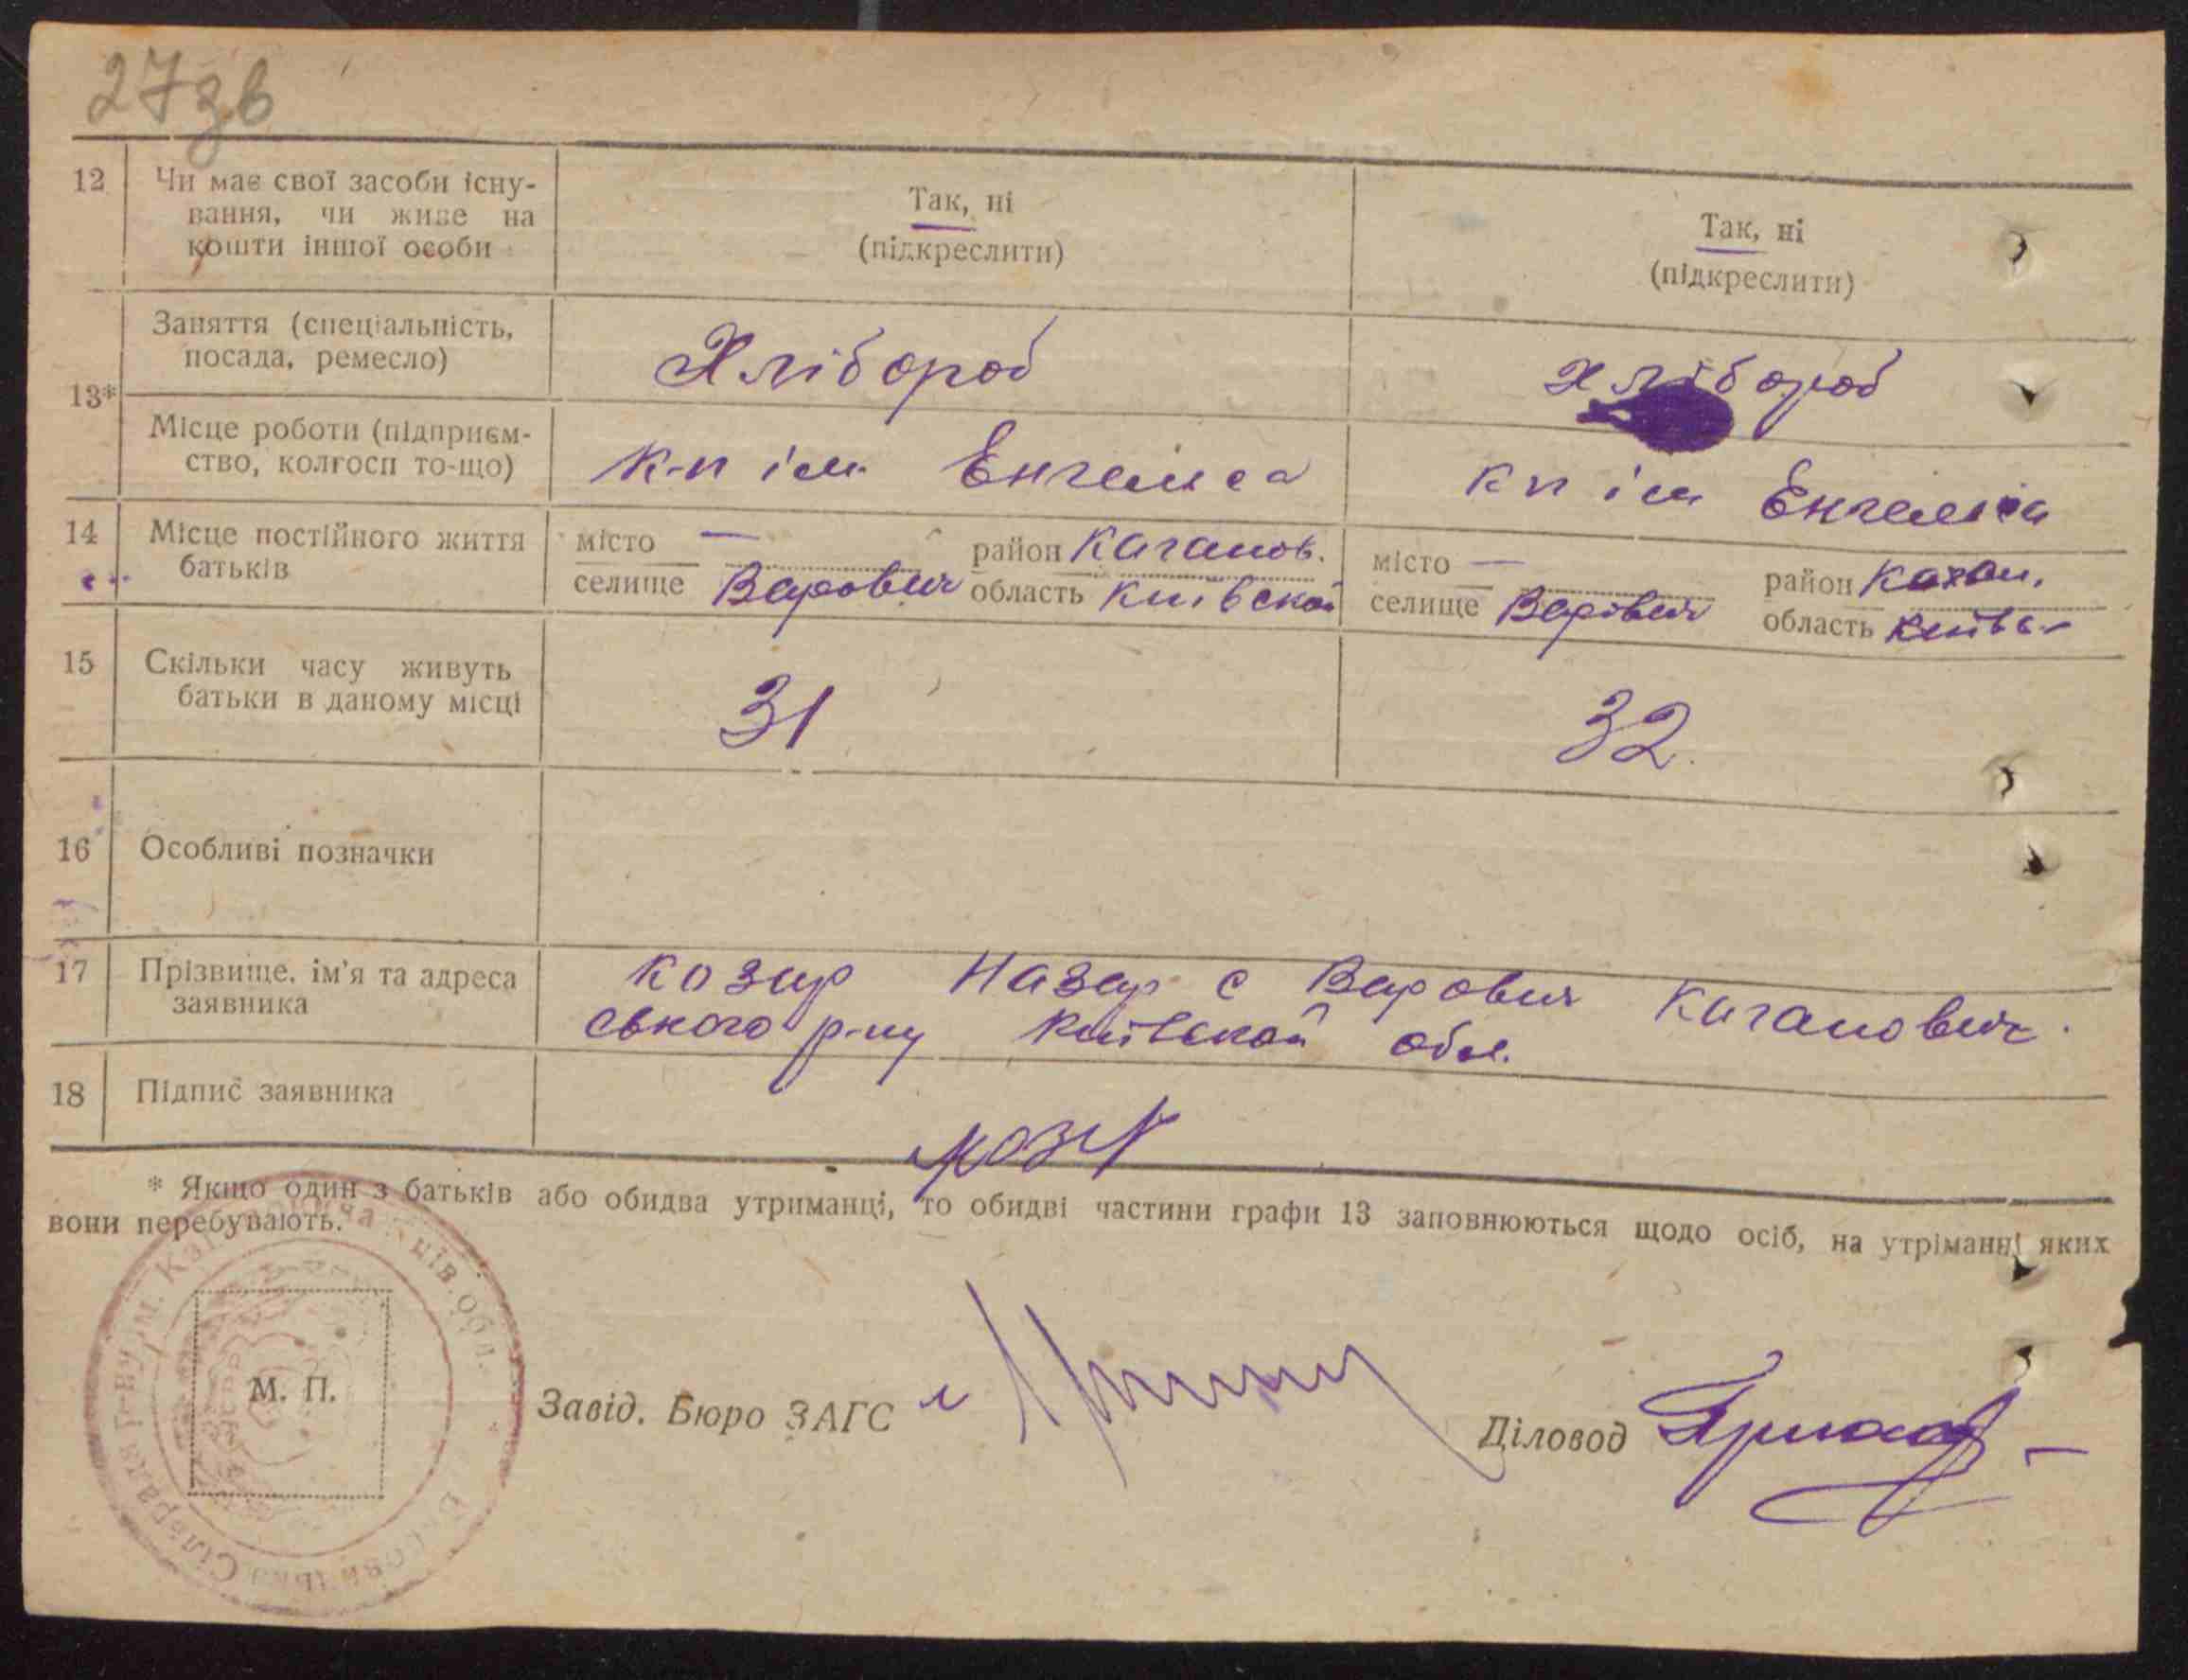 27зв
12 Чи має свої засоби існу-
вання, чи живе на
кошти іншої особи
Так, ні
(підкреслити)
Так, ні
(підкреслити)
13*
Заняття (спеціальність,
посада, ремесло)
Хлібороб
Хлібороб
Місце роботи (підприєм-
ство, колгосп то-що)
к-п ім Енгельса
к п ім Енгельса
14 Місце постійного життя
батьків
місто — район Каганов.
селище Варовичі область Київской
місто — район Каган.
селище Варовичі область Київс
15 Скільки часу живуть
батьки в даному місці
31
32.
16 Особливі позначки
17 Прізвище, ім'я та адреса
заявника
Козир Назар с Варовичі Каганович
ського р-ну Київской обл.
18 Підпис заявника
Кози
* Якщо один з батьків або обидва утриманці, то обидві частини графи 13 заповнюються щодо осіб, на утріманні яких
вони перебувають.
М. П.
Завід. Бюро ЗАГС
Діловод
Сільрада р-ну ім. Кагановича Київ. обл.